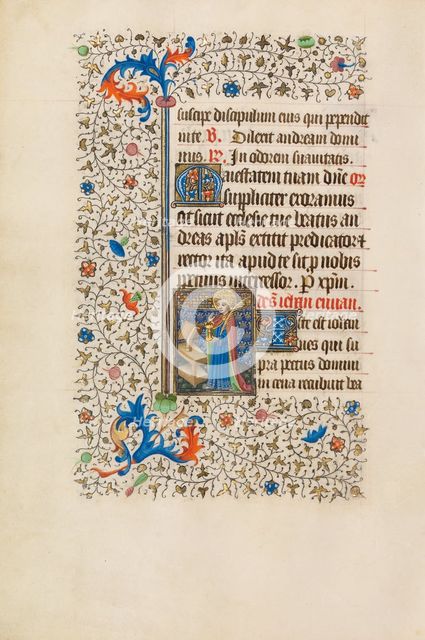 suscipe discipulum eius qui pependit
in te. V. Dilexit andream domi
nus. R. In odorem suauitatis.
Maiestatem tuam dne or
suppliciter exoramus
vt sicut ecclesie tue beatus an
dreas apls extitit predicator et
rector ita apud te sit p nobis
perpetuus intercessor. P xpm.
de s. iehan euuan.
Iste est iohan
nes qui su
pra pectus domini
in cena recubuit bea